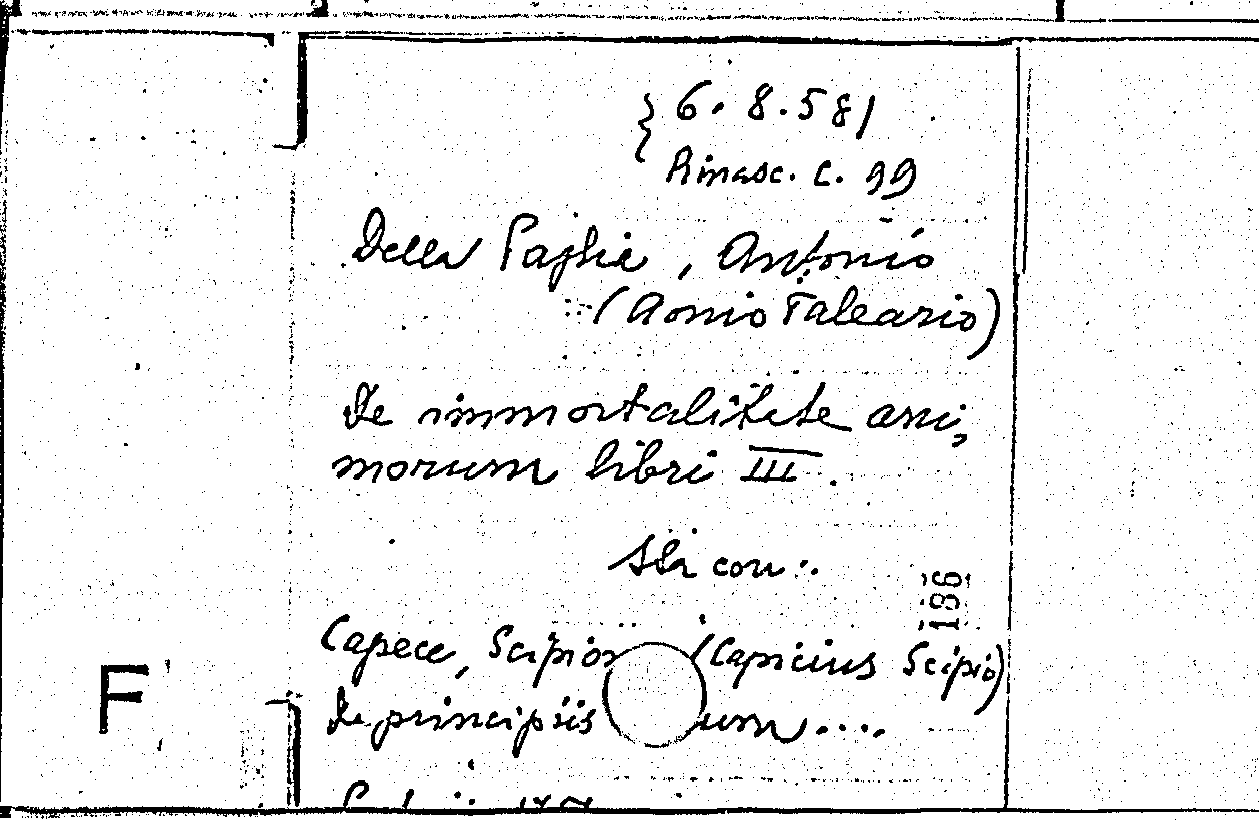 6. 8. 581
Rinasc. C. 99
Della Paglia, Antonio
(Aonio Paleario)
De immortalitate ani,
morum libri III.
Sta con:
186
Capece, Scipion (Capicius Scipio)
De principiis um....
F